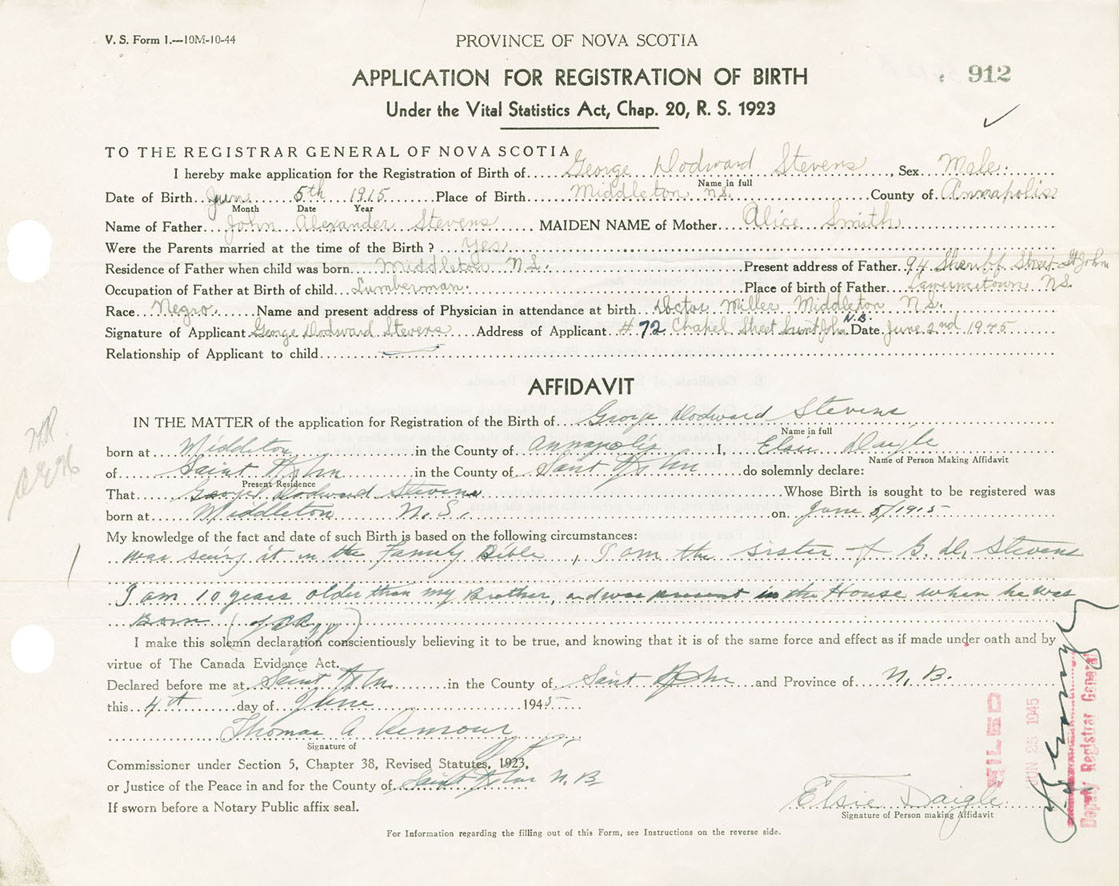 V. S. Form 1.—10M-10-44
PROVINCE OF NOVA SCOTIA
912
APPLICATION FOR REGISTRATION OF BIRTH
Under the Vital Statistics Act, Chap. 20, R. S. 1923
TO THE REGISTRAR GENERAL OF NOVA SCOTIA
I hereby make application for the Registration of Birth of George Dodward Stevens, Sex Male.
Name in full
Date of Birth June 5th 1915 Place of Birth Middleton, N.S. County of Annapolis
Month Date Year
Name of Father John Alexander Stevens MAIDEN NAME of Mother Alice Smith
Were the Parents married at the time of the Birth? Yes
Residence of Father when child was born Middleton N.S. Present address of Father 94 Sheriff Street St John
Occupation of Father at Birth of child Lumberman. Place of birth of Father N.S.
Race Negro. Name and present address of Physician in attendance at birth Doctor Miller Middleton N.S.
Signature of Applicant George Dodward Stevens Address of Applicant #72 Chapel Street Saint John N.B. Date June 2nd 1945
Relationship of Applicant to child
AFFIDAVIT
IN THE MATTER of the application for Registration of the Birth of George Dodward Stevens
Name in full
born at Middleton in the County of Annapolis I, Elsie Daigle
Name of Person Making Affidavit
of Saint John in the County of Saint John do solemnly declare:
Present Residence
That George Dodward Stevens Whose Birth is sought to be registered was
born at Middleton N.S. on June 5/1915
My knowledge of the fact and date of such Birth is based on the following circumstances:
was seing it in the Family Bible, I am the sister of G. D. Stevens
I am 10 years older than my Brother, and was present in the House when he was
Born
I make this solemn declaration conscientiously believing it to be true, and knowing that it is of the same force and effect as if made under oath and by
virtue of The Canada Evidence Act.
Declared before me at Saint John in the County of Saint John and Province of N.B.
this 4th day of June 1945
Thomas A Armour
Signature of
Commissioner under Section 5, Chapter 38, Revised Statutes, 1923,
or Justice of the Peace in and for the County of Saint John N.B
If sworn before a Notary Public affix seal.
Elsie Daigle
Signature of Person making Affidavit
FILED
JUN 25 1945
Deputy Registrar General
For Information regarding the filling out of this Form, see Instructions on the reverse side.